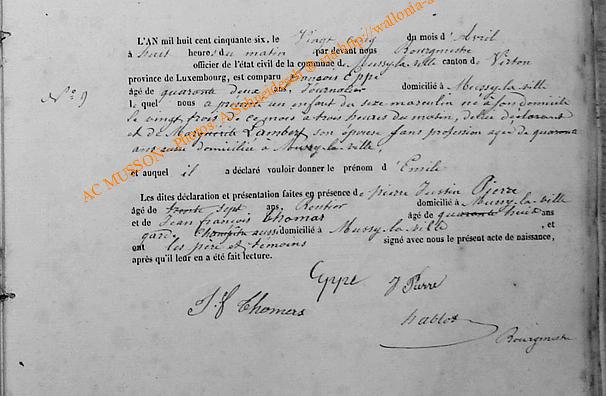 L'AN mil huit cent cinquante six, le Vingt cinq du mois d'Avril
à huit heures du matin par devant nous Bourgmestre
officier de l'état civil de la commune de Mussy-la-ville canton de Virton
province de Luxembourg, est comparu Eppe
N° 9
âgé de quarante deux ans, Journalier domicilié à Mussy-la-ville
lequel nous a présenté un enfant du sexe masculin né à son domicile
le vingt trois de ce mois à trois heures du matin, de lui déclarant
et de Marguerite Lambert son épouse sans profession agée de quarante
ans aussi domiciliée à Mussy-la-ville,
et auquel il a déclaré vouloir donner le prénom d'Emile
Les dites déclaration et présentation faites en présence de pierre Justin Pierre
âgé de trente sept ans, Rentier domicilié à Mussy-la-ville
et de Jean françois Thomas âgé de quarante huit ans
garde Champêtre aussi domicilié à Mussy-la-ville, et
ont les père et témoins signé avec nous le présent acte de naissance,
après qu'il leur en a été fait lecture.
Eppe J Pierre
J. f Thomas
Bourgmestre
AC MUSSON - Photos: A. Schneider